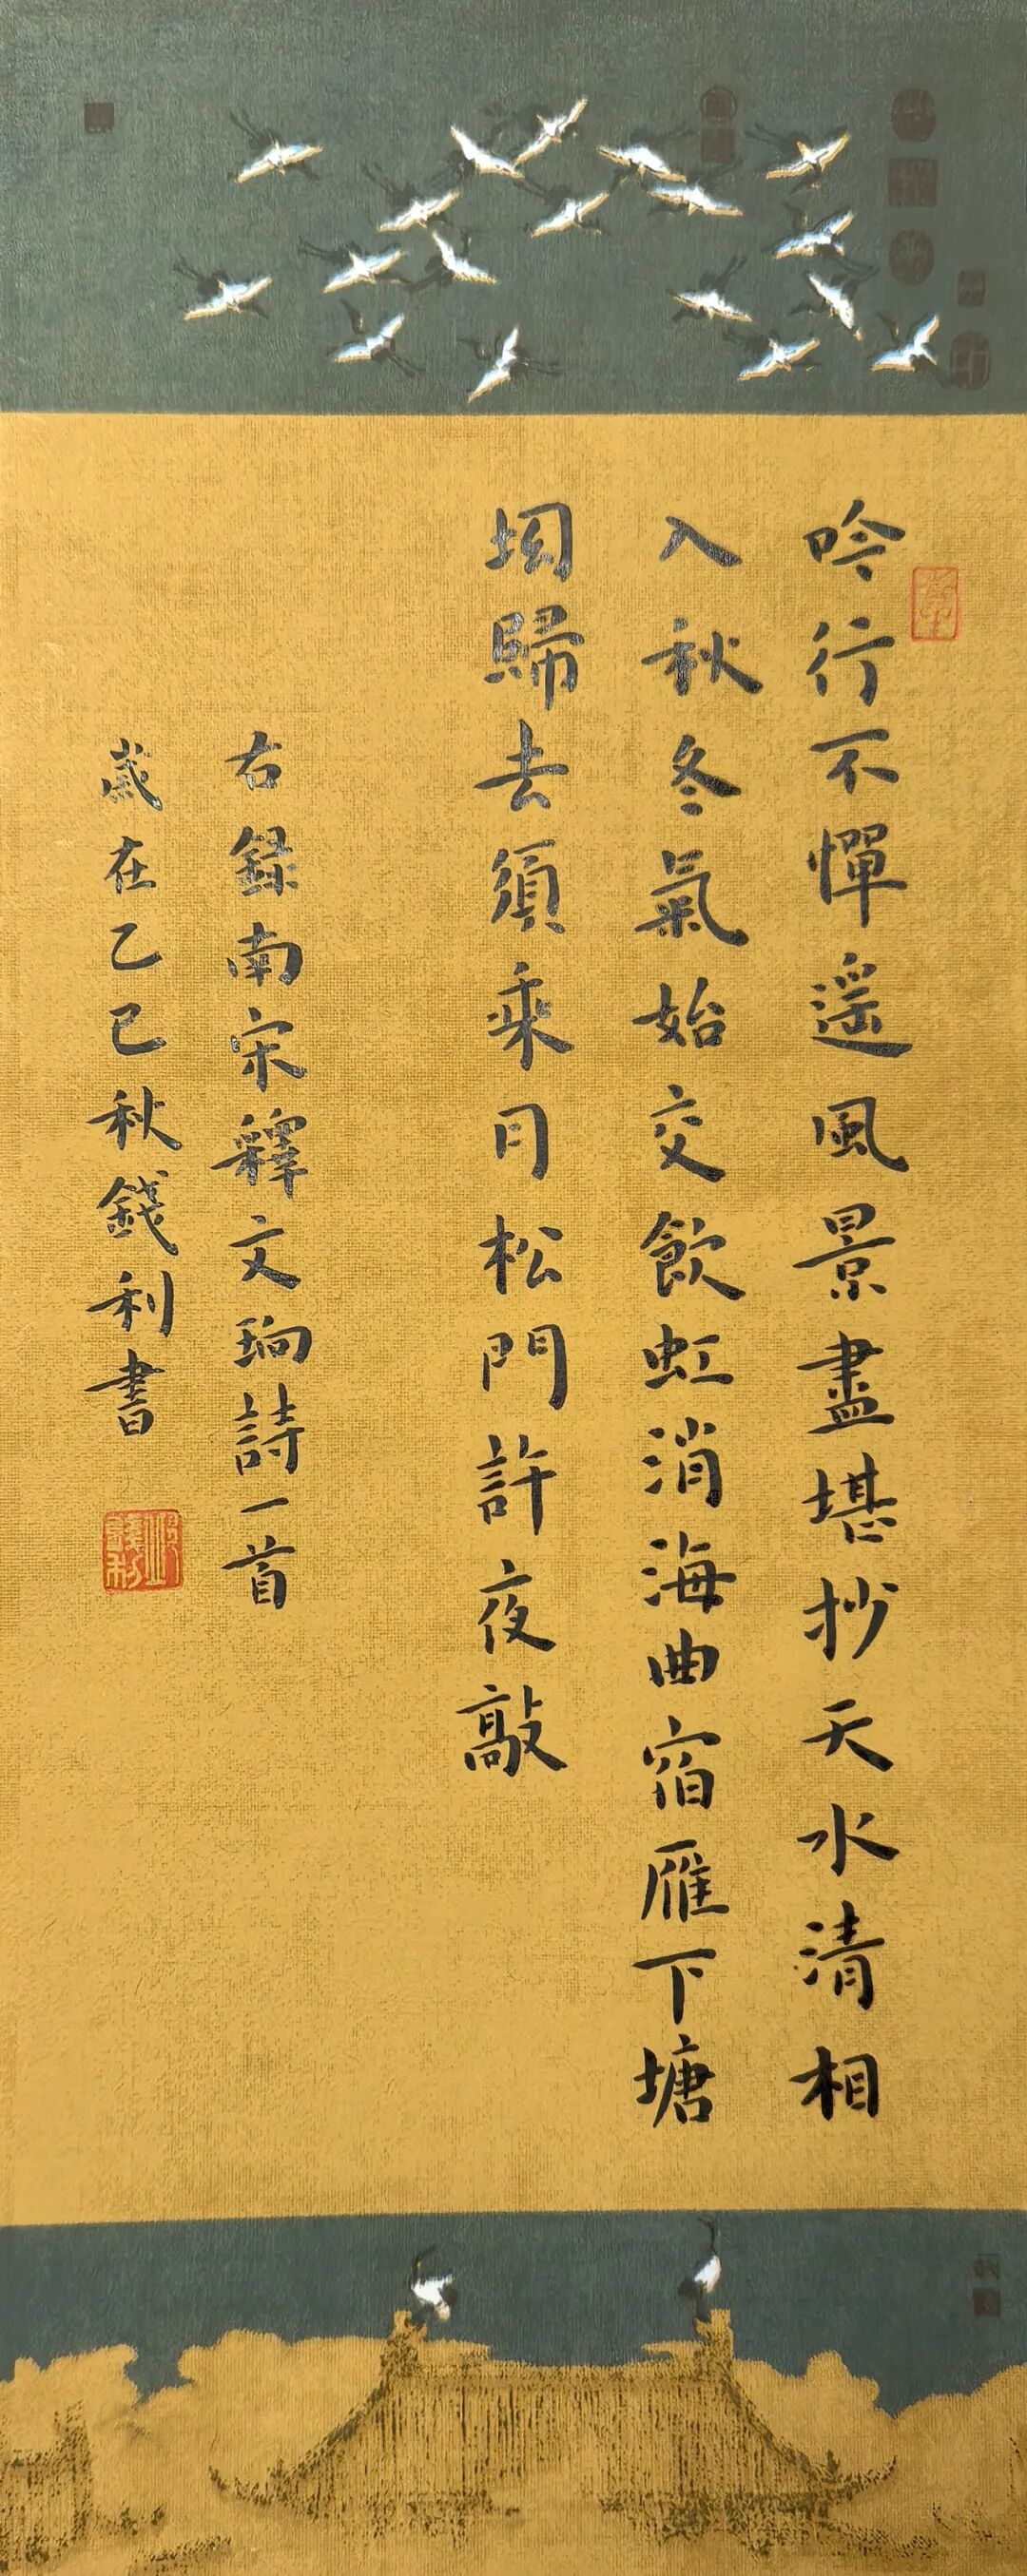 吟行不憚遥風景盡堪抄天水清相
入秋冬氣始交飲虹消海曲宿雁下塘
坳歸去須乘月松門許夜敲
右録南宋釋文珦詩一首
歲在乙巳秋錢利書